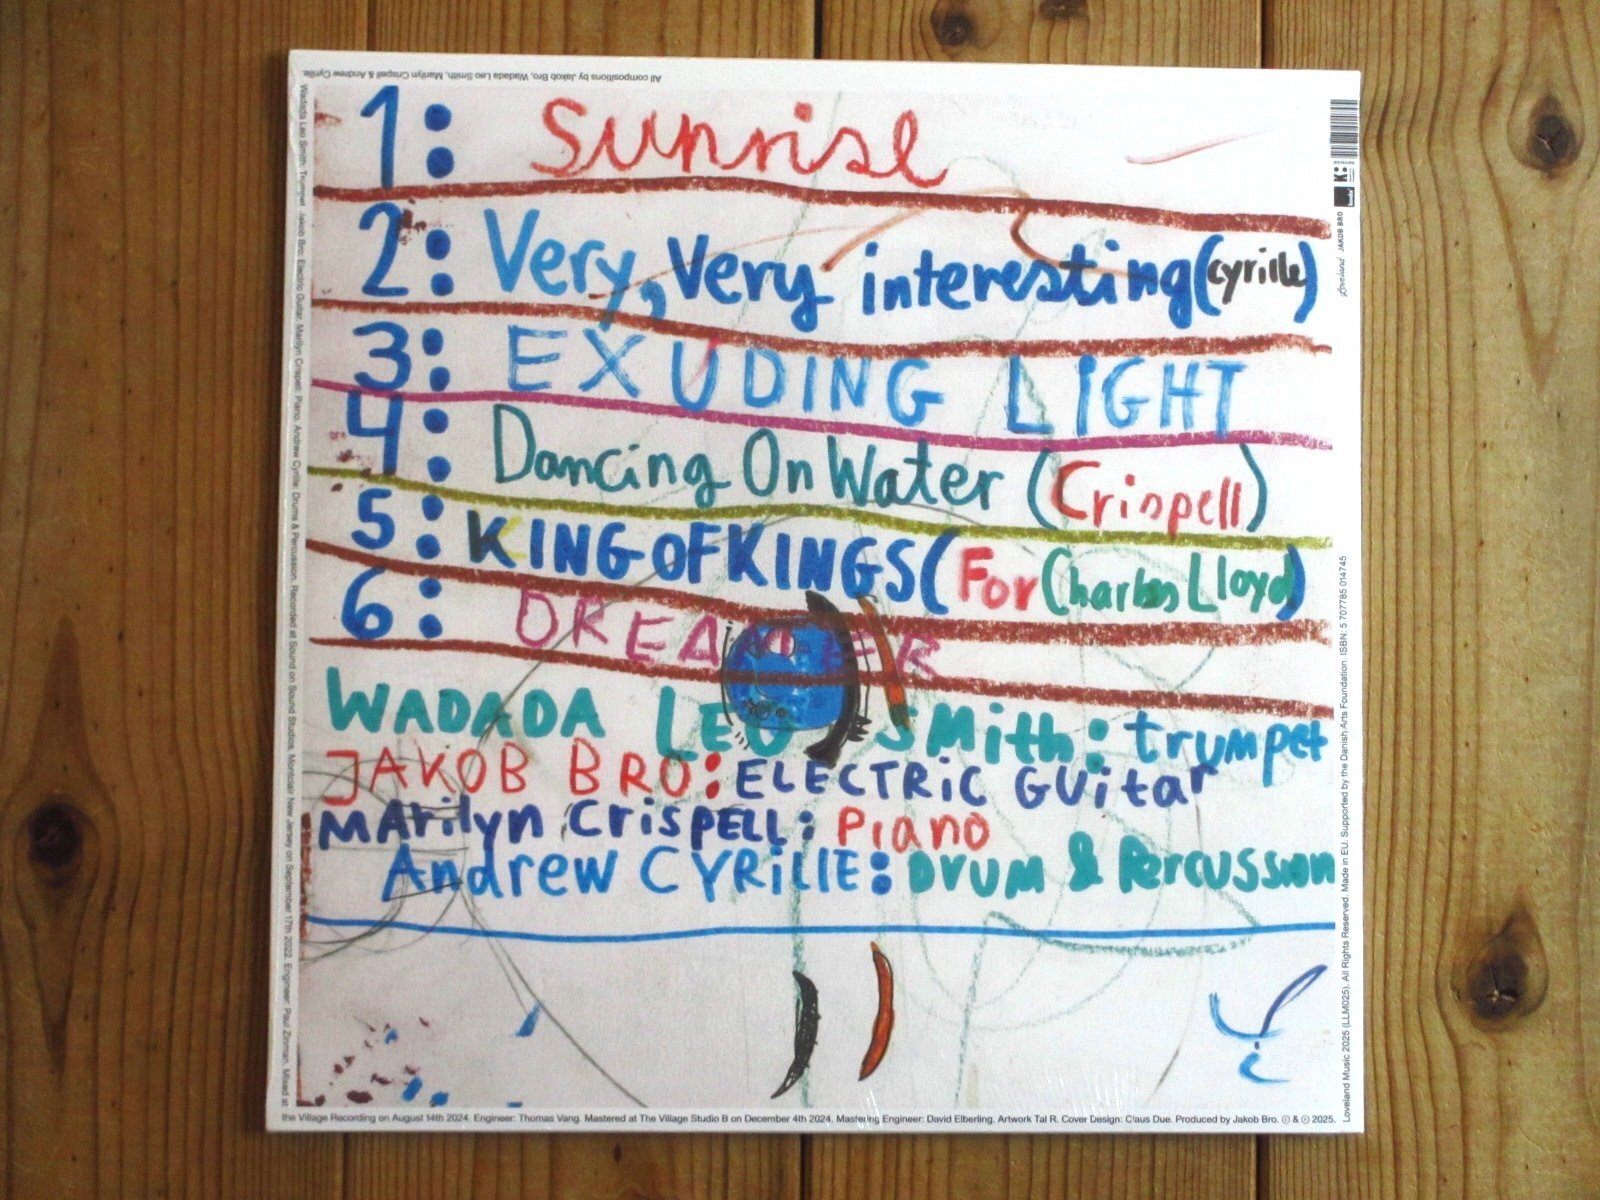 All compositions by Jakob Bro, Wadada Leo Smith, Marilyn Crispell & Andrew Cyrille.
1: Sunrise
2: Very, Very interesting (cyrille)
3: EXUDING LiGHT
4: Dancing On Water (Crispell)
5: KING OF KINGS (For Charles Lloyd)
6: DREAMER
WADADA LEO SMith: trumpet
JAKOB BRO: ELECTRiC GUitar
MArilyn CrisPELL: Piano
Andrew CYRiLLE: DrUM & Percussion
Wadada Leo Smith: Trumpet. Jakob Bro: Electric Guitar. Marilyn Crispell: Piano. Andrew Cyrille: Drums & Percussion. Recorded at Sound on Sound Studios, Montclair New Jersey on September 17th 2022. Engineer: Paul Zinman. Mixed at
the Village Recording on August 14th 2024. Engineer: Thomas Vang. Mastered at The Village Studio B on December 4th 2024. Mastering Engineer: David Elberling. Artwork Tal R. Cover Design: Claus Due. Produced by Jakob Bro. © & ℗ 2025.
Loveland Music 2025 (LLM025). All Rights Reserved. Made in EU. Supported by the Danish Arts Foundation. ISBN: 5 707785 014745
Loveland JAKOB BRO
K: